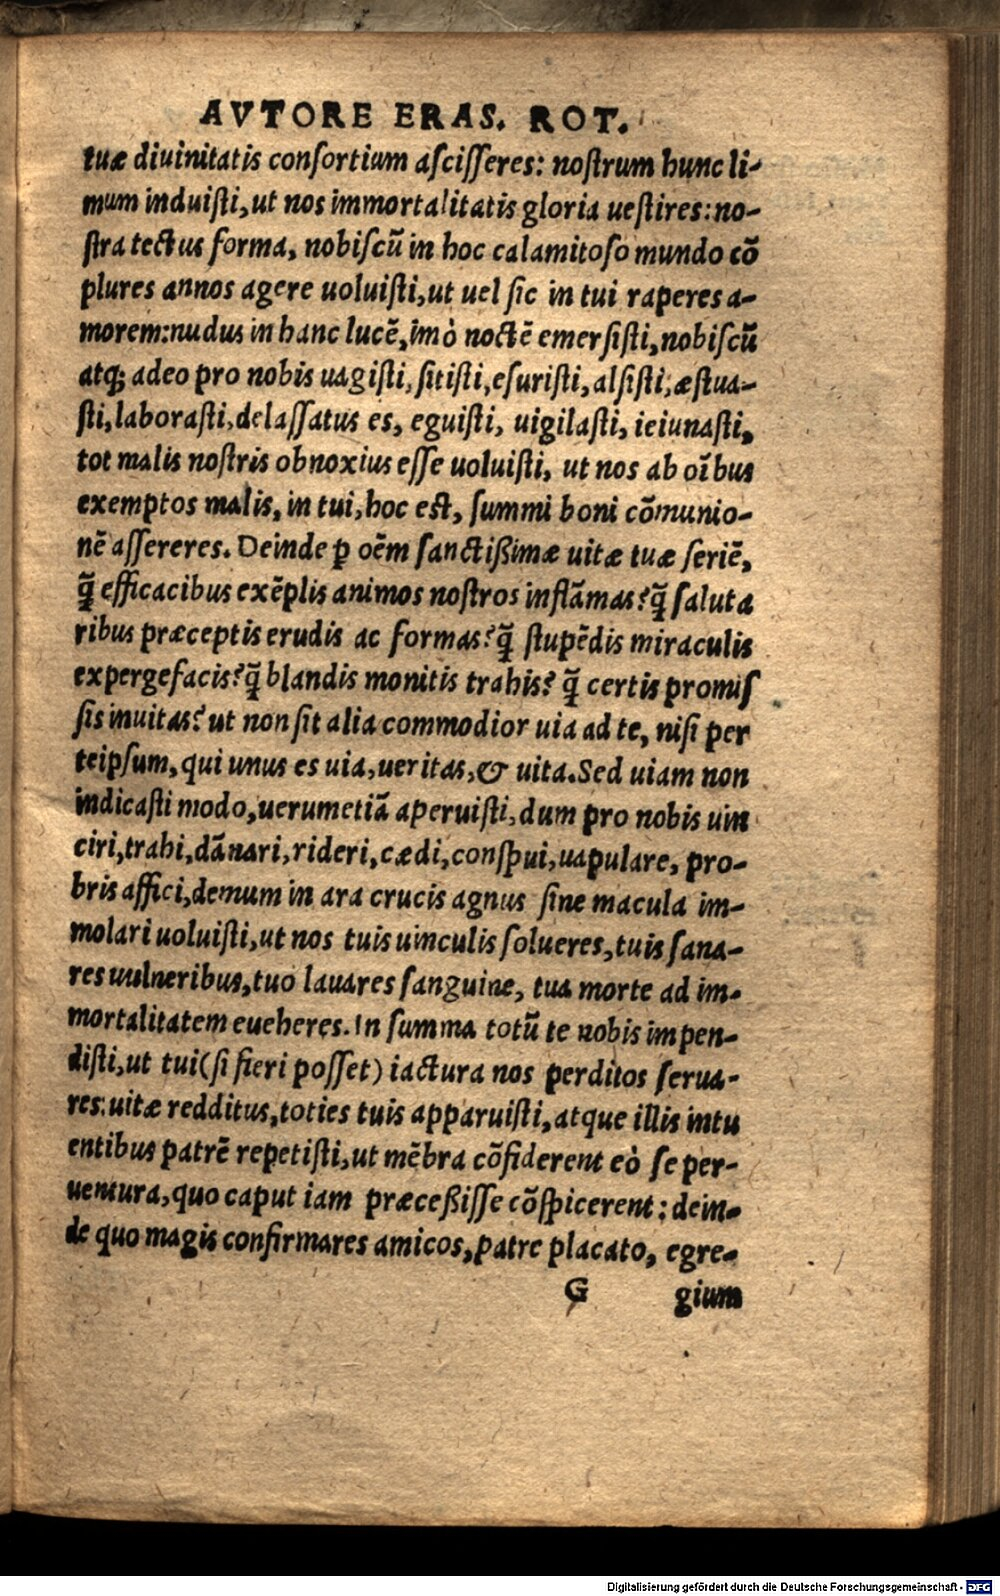 AVTORE ERAS. ROT.
tuæ diuinitatis conſortium aſciſſeres: noſtrum hunc li-
mum induiſti, ut nos immortalitatis gloria ueſtires: no-
ſtra tectus forma, nobiſcũ in hoc calamitoſo mundo cõ
plures annos agere uoluiſti, ut uel ſic in tui raperes a-
morem: nudus in hanc lucẽ, imò noctẽ emerſiſti, nobiſcũ
atq; adeo pro nobis uagiſti, ſitiſti, eſuriſti, alſiſti, æſtua-
ſti, laboraſti, delaſſatus es, eguiſti, uigilaſti, ieiunaſti,
tot malis noſtris obnoxius eſſe uoluiſti, ut nos ab oĩbus
exemptos malis, in tui, hoc eſt, ſummi boni cõmunio-
nẽ aſſereres. Deinde ꝑ oẽm ſanctißimæ uitæ tuæ ſeriẽ,
q̃ efficacibus exẽplis animos noſtros inflãmas? q̃ ſaluta
ribus præceptis erudis ac formas? q̃ ſtupẽdis miraculis
expergefacis? q̃ blandis monitis trahis? q̃ certis promiſ
ſis inuitas? ut non ſit alia commodior uia ad te, niſi per
teipſum, qui unus es uia, ueritas, & uita. Sed uiam non
indicaſti modo, uerumetiã aperuiſti, dum pro nobis uin
ciri, trahi, dãnari, rideri, cædi, conſpui, uapulare, pro-
bris affici, demum in ara crucis agnus ſine macula im-
molari uoluiſti, ut nos tuis uinculis ſolueres, tuis ſana-
res uulneribus, tuo lauares ſanguine, tua morte ad im-
mortalitatem eueheres. In ſumma totũ te nobis impen-
diſti, ut tui (ſi fieri poſſet) iactura nos perditos ſerua-
res: uitæ redditus, toties tuis apparuiſti, atque illis intu
entibus patrẽ repetiſti, ut mẽbra cõfiderent eò ſe per-
uentura, quo caput iam præceßiſſe cõſpicerent: dein-
de quo magis confirmares amicos, patre placato, egre-
G gium
Digitalisierung gefördert durch die Deutsche Forschungsgemeinschaft - DFG